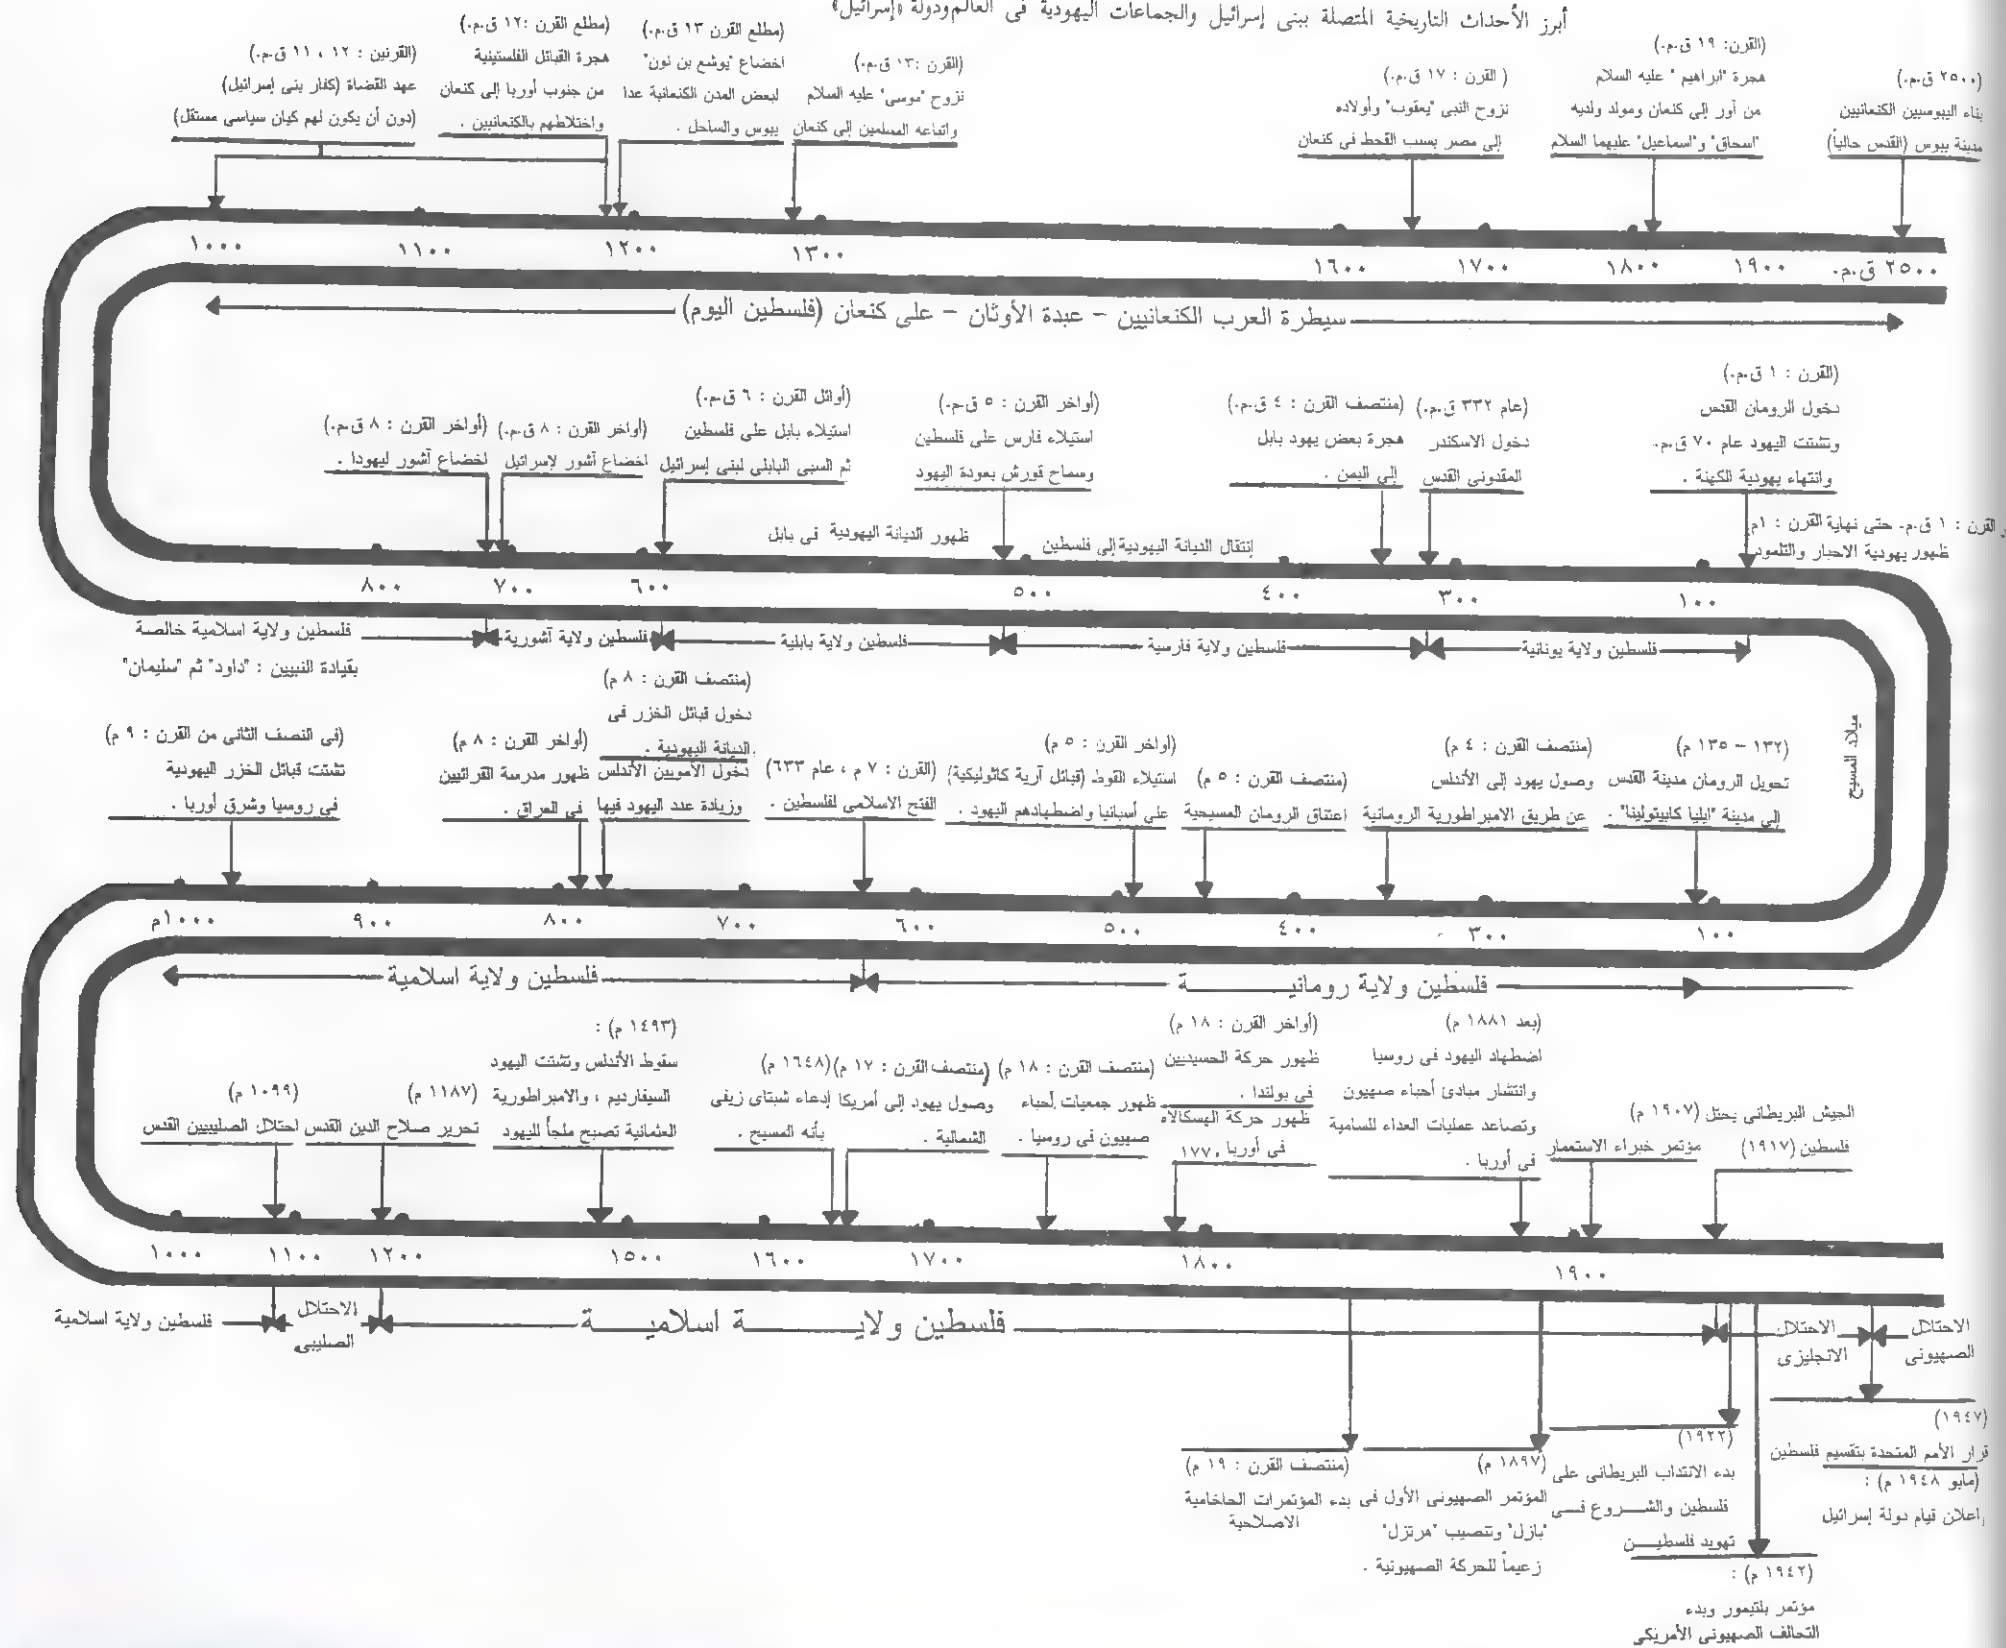 أبرز الأحداث التاريخية المتصلة ببنى إسرائيل والجماعات اليهودية فى العالم ودولة «إسرائيل»
(٢٥٠٠ ق.م.)
بناء اليبوسيين الكنعانيين
مدينة يبوس (القدس حالياً)
(القرن: ١٩ ق.م.)
هجرة "ابراهيم" عليه السلام
من أور إلى كنعان ومولد ولديه
"اسحاق" و"اسماعيل" عليهما السلام
(القرن : ١٧ ق.م.)
نزوح النبي "يعقوب" وأولاده
إلى مصر بسبب القحط فى كنعان
(القرن :١٣ ق.م.)
نزوح "موسى" عليه السلام
واتباعه المسلمين إلى كنعان
(مطلع القرن ١٣ ق.م.)
اخضاع "يوشع بن نون"
لبعض المدن الكنعانية عدا
يبوس والساحل .
(مطلع القرن :١٢ ق.م.)
هجرة القبائل الفلستينية
من جنوب أوربا إلى كنعان
واختلاطهم بالكنعانيين .
(القرنين : ١٢ ، ١١ ق.م.)
عهد القضاة (كفار بنى إسرائيل)
(دون أن يكون لهم كيان سياسى مستقل)
٢٥٠٠ ق.م.
١٩٠٠
١٨٠٠
١٧٠٠
١٦٠٠
١٣٠٠
١٢٠٠
١١٠٠
١٠٠٠
سيطرة العرب الكنعانيين - عبدة الأوثان - على كنعان (فلسطين اليوم)
(القرن : ١ ق.م.)
دخول الرومان القدس
وتشتت اليهود عام ٧٠ ق.م.
وانتهاء يهودية الكهنة .
القرن : ١ ق.م. حتى نهاية القرن : ١م
ظهور يهودية الاحبار والتلمود
(عام ٣٣٢ ق.م.)
دخول الاسكندر
المقدونى القدس
(منتصف القرن : ٤ ق.م.)
هجرة بعض يهود بابل
إلى اليمن .
إنتقال الديانة اليهودية إلى فلسطين
(أواخر القرن : ٥ ق.م.)
استيلاء فارس على فلسطين
وسماح قورش بعودة اليهود
ظهور الديانة اليهودية فى بابل
(أوائل القرن : ٦ ق.م.)
استيلاء بابل على فلسطين
ثم السبى البابلى لبنى إسرائيل
(أواخر القرن : ٨ ق.م.)
اخضاع آشور لإسرائيل
(أواخر القرن : ٨ ق.م.)
اخضاع آشور ليهودا .
١٠٠
٣٠٠
٤٠٠
٥٠٠
٦٠٠
٧٠٠
٨٠٠
فلسطين ولاية يونانية
فلسطين ولاية فارسية
فلسطين ولاية بابلية
فلسطين ولاية آشورية
فلسطين ولاية اسلامية خالصة
بقيادة النبيين : "داود" ثم "سليمان"
ميلاد المسيح
(١٣٢ - ١٣٥ م)
تحويل الرومان مدينة القدس
إلى مدينة "ايليا كابيتولينا" .
(منتصف القرن : ٤ م)
وصول يهود إلى الأندلس
عن طريق الامبراطورية الرومانية
(منتصف القرن : ٥ م)
اعتناق الرومان المسيحية
(أواخر القرن : ٥ م)
استيلاء القوط (قبائل آرية كاثوليكية)
على أسبانيا واضطهادهم اليهود .
(القرن : ٧ م ، عام ٦٣٣)
الفتح الاسلامى لفلسطين .
(منتصف القرن : ٨ م)
دخول قبائل الخزر فى
الديانة اليهودية .
دخول الأمويين الأندلس
وزيادة عدد اليهود فيها
(أواخر القرن : ٨ م)
ظهور مدرسة القرائيين
فى العراق .
(فى النصف الثانى من القرن : ٩ م)
تشتت قبائل الخزر اليهودية
فى روسيا وشرق أوربا .
١٠٠
٣٠٠
٤٠٠
٥٠٠
٦٠٠
٧٠٠
٨٠٠
٩٠٠
١٠٠٠م
فلسطين ولاية رومانيـــــــة
فلسطين ولاية اسلامية
الجيش البريطانى يحتل
فلسطين (١٩١٧)
(١٩٠٧ م)
مؤتمر خبراء الاستعمار
(بعد ١٨٨١ م)
اضطهاد اليهود فى روسيا
وانتشار مبادئ أحباء صهيون
وتصاعد عمليات العداء للسامية
فى أوربا .
(أواخر القرن : ١٨ م)
ظهور حركة الحسيديين
فى بولندا .
ظهور حركة الهسكالاه
فى أوربا ١٧٧٠
(منتصف القرن : ١٨ م)
ظهور جمعيات أحباء
صهيون فى روسيا .
(منتصف القرن : ١٧ م)
وصول يهود إلى أمريكا
الشمالية .
(١٦٤٨ م)
إدعاء شبتاى زيفى
بأنه المسيح .
(١٤٩٣ م) :
سقوط الأندلس وتشتت اليهود
السيفارديم ، والامبراطورية
العثمانية تصبح ملجأ لليهود
(١١٨٧ م)
تحرير صلاح الدين القدس
(١٠٩٩ م)
احتلال الصليبيين القدس
١٠٠٠
١١٠٠
١٢٠٠
١٥٠٠
١٦٠٠
١٧٠٠
١٨٠٠
١٩٠٠
فلسطين ولاية اسلامية
الاحتلال
الصليبى
فلسطين ولايـــــــة اسلاميـــــة
الاحتلال
الانجليزى
الاحتلال
الصهيونى
(١٩٤٧)
قرار الأمم المتحدة بتقسيم فلسطين
(مايو ١٩٤٨ م) :
إعلان قيام دولة إسرائيل
(١٩٢٢)
بدء الانتداب البريطانى على
فلسطين والشـــروع فــى
تهويد فلسطيــــن
(١٩٤٢ م) :
مؤتمر بلتيمور وبدء
التحالف الصهيونى الأمريكى
(١٨٩٧ م)
المؤتمر الصهيونى الأول فى
"بازل" وتنصيب "هرتزل"
زعيماً للحركة الصهيونية .
(منتصف القرن : ١٩ م)
بدء المؤتمرات الحاخامية
الاصلاحية